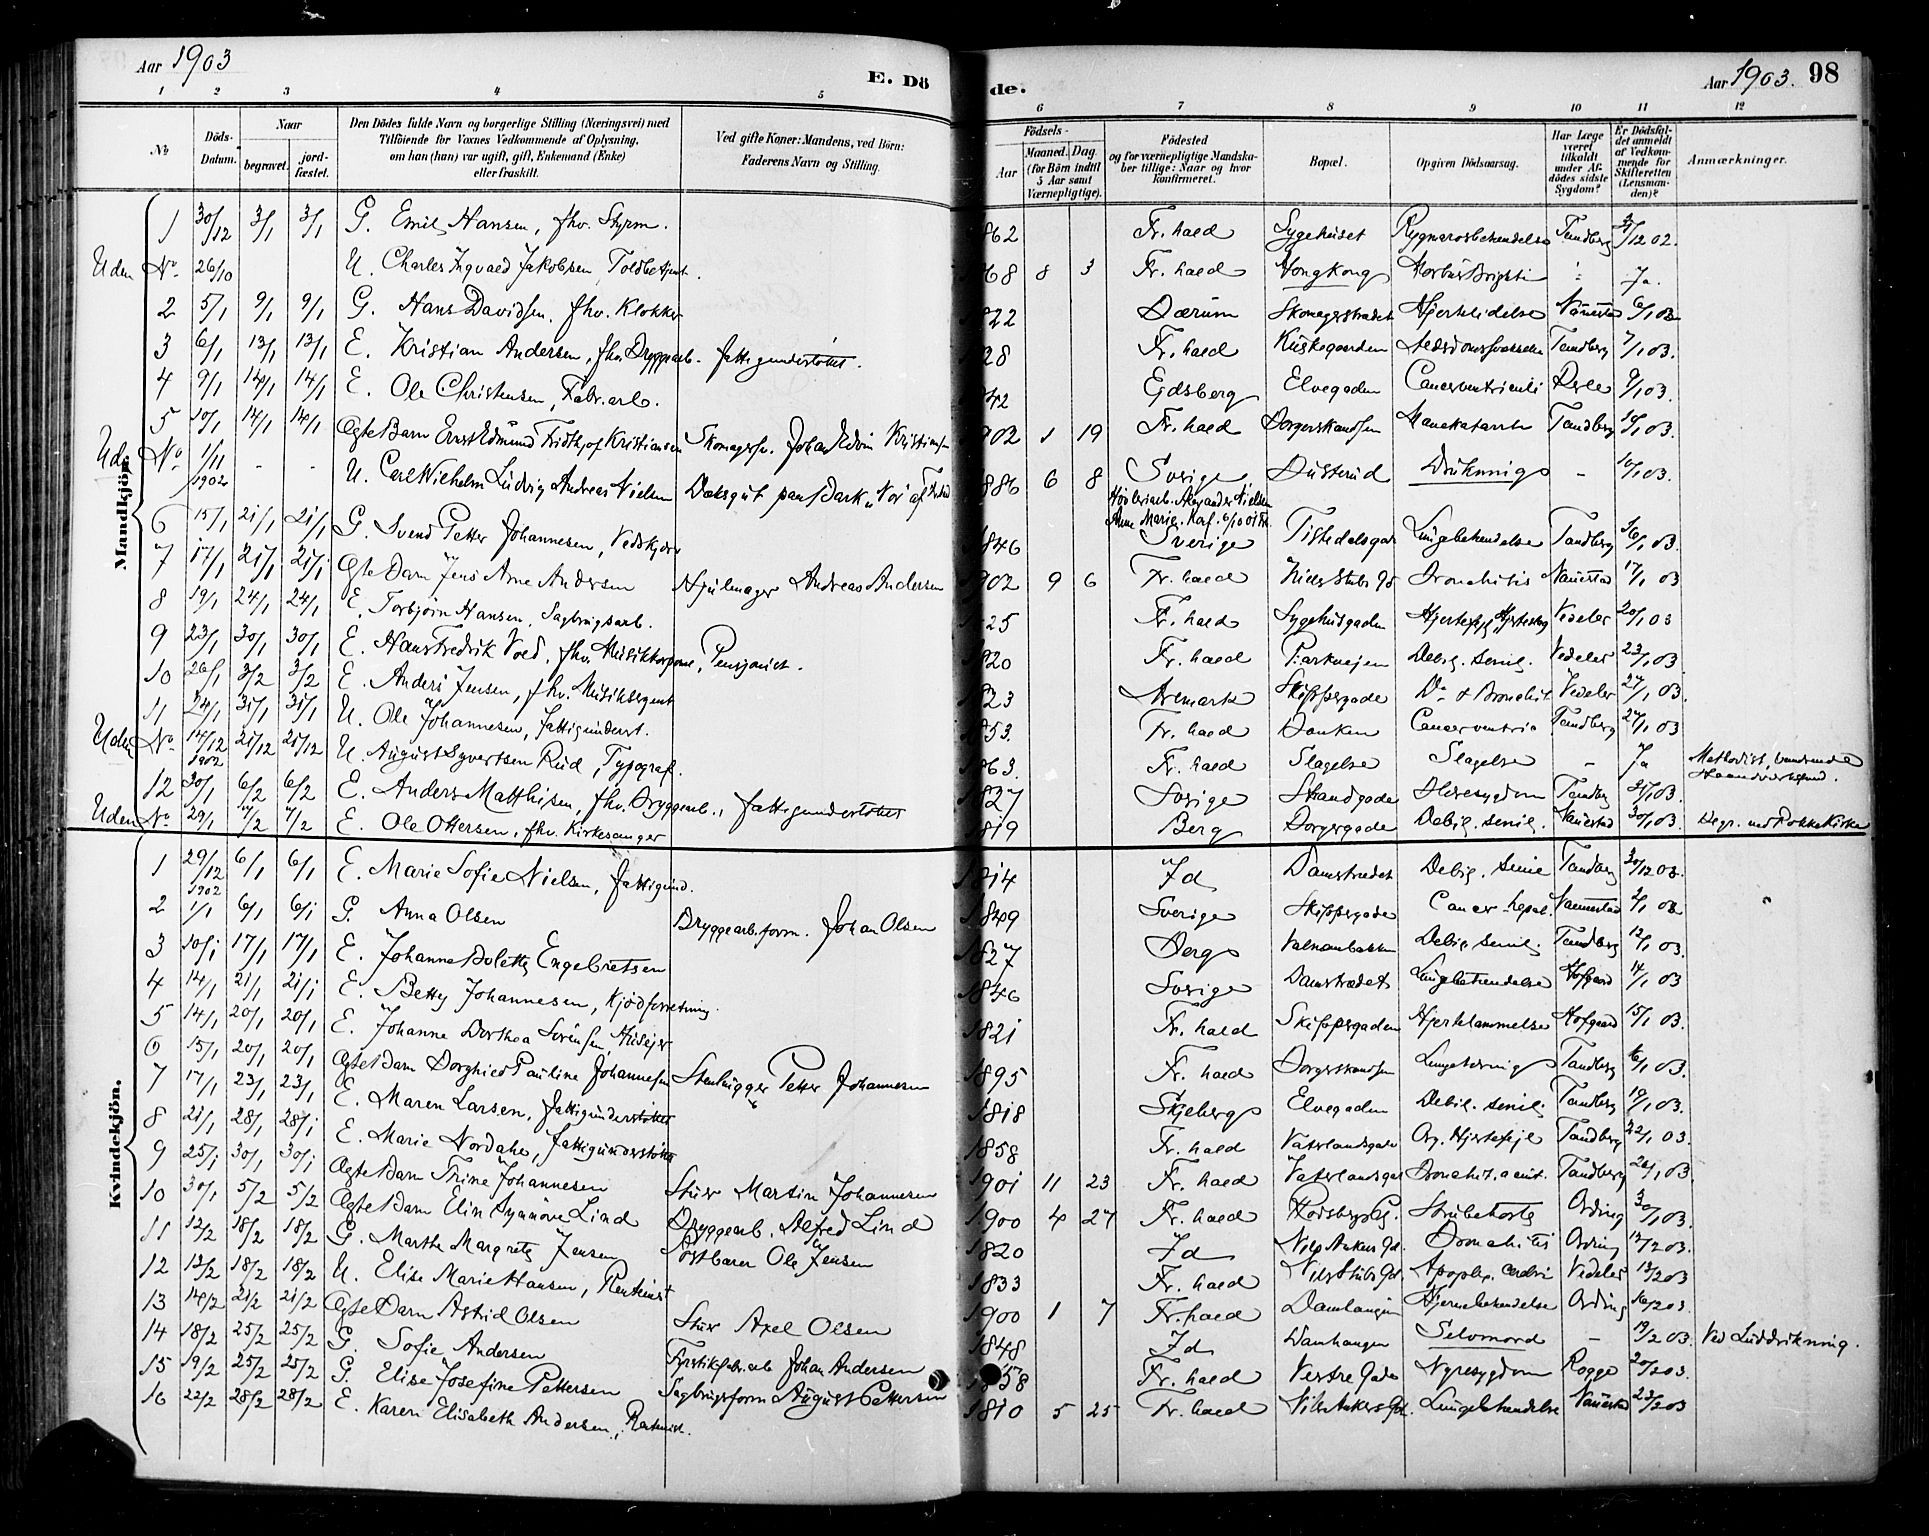 Aar 1903
E. Dö
de.
Aar 1903. 98
1 2 3 4 5 6 7 8 9 10 11 12
No
Döds-Datum.
Naar
begravet. jord-fæstet.
Den Dödes fulde Navn og borgerlige Stilling (Næringsvei) med
Tilföiende for Voxnes Vedkommende af Oplysning,
om han (hun) var ugift, gift, Enkemand (Enke)
eller fraskilt.
Ved gifte Koner: Mandens, ved Börn:
Faderens Navn og Stilling.
Födsels-
Aar Maaned. Dag.
(for Börn indtil
5 Aar samt
Værnepligtige).
Födested
og for værnepligtige Mandska-
ber tillige: Naar og hvor
konfirmeret.
Bopæl.
Opgiven Dödsaarsag.
Har Læge
været
tilkaldt
under Af-
dödes sidste
Sygdom?
Er Dödsfal-
det anmeldt
af Vedkom-
mende for
Skifteretten
(Lensman-
den)?
Anmærkninger.
Mandkjön.
1 30/12 3/1 3/1 G. Emil Hansen, fhv. Styrm. 862 Fr. hald Sygehuset Tandberg 31/12 02.
Uden No. 26/10 U. Charles Ingvald Jakobsen, Toldbetjent. 68 8 3 Fr. hald Hongkong Ja.
2 5/1 9/1 9/1 G. Hans Davidsen, fhv. Klokker 822 Hjertelidelse 6/1 03
3 6/1 13/1 13/1 E. Kristian Andersen, fhv. Bryggearb. fattigunderstöttet. 28 Fr. hald Tandberg 7/1 03.
4 9/1 14/1 14/1 E. Ole Christensen, Fabr.arb. 42 Ejdsberg Elvegaden Cancer ventriculi 9/1 03.
5 10/1 14/1 14/1 Ægte Barn Ernst Edmund Fridthjof Kristiansen Skomagersv. Johan Edvin Kristiansen 902 1 19 Fr. hald Tandberg 10/1 03.
Uden No. 1/11 1902 - - U. Carl Wilhelm Ludvig Andreas Nielsen Dæksgut paa Bark „Voi" af 886 6 8 Sverige Drukning - 10/1 03.
Alexander Nielsen
Anne Marie. Kaf. 6/10 01 Fr.
6 15/1 21/1 21/1 G. Svend Petter Johannesen, Vedskjærer 846 Sverige Tistedalsgade Lungebetændelse Tandberg 16/1 03.
7 17/1 21/1 21/1 Ægte Barn Jens Arne Andersen Hjulmager Andreas Andersen 1902 9 6 Fr. hald Niels Stubs Gd Bronchitis 17/1 03
8 19/1 24/1 24/1 E. Torbjörn Hansen, Sagbrugsarb. 25 Fr. hald Sygehusgaden Vedeler 20/1 03
9 23/1 30/1 30/1 E. Hans Fredrik Voed, fhv. Pensjonist. 820 Fr. hald Parkvejen Debil. senil. Vedeler 23/1 03.
10 26/1 3/2 3/2 E. Anders Jensen, fhv. Musiksergent 823 Aremark Skippergade Do & Bronchit Vedeler 27/1 03.
11 24/1 31/1 31/1 U. Ole Johannesen, fattigunderst. 853. Fr. hald Banken Cancer ventric Tandberg 27/1 03
Uden No. 14/12 1902 21/12 21/12 U. August Syvertsen Rud, Typograf. 863. Fr. hald Slagelse Slagelse - Ja Methodist,
12 30/1 6/2 6/2 E. Anders Matthisen, fhv. Bryggearb., fattigunderstöttet 827 Sverige Strandgade Tandberg 31/1 03.
Uden No. 29/1 4/2 4/2 E. Ole Ottersen, fhv. Kirkesanger 1819 Berg Borgergade Debil. senil. 30/1 03. Begr. ved Rokke Kirke
Kvindekjön.
1 29/12 1902 6/1 6/1 E. Marie Sofie Nielsen, fattigund. 1814 Id Damstrædet Debil. senil Tandberg 30/12 02.
2 1/1 6/1 6/1 G. Anna Olsen Bryggearb.form. Johan Olsen 1849 Sverige Skippergade Cancer hepat. 2/1 03
3 10/1 17/1 17/1 E. Johanne Bolette Engebretsen 1827 Berg Debil. senil. Tandberg 12/1 03.
4 14/1 21/1 21/1 E. Betty Johannesen, Kjödforretning. 1846 Sverige Damstrædet Lungebetændelse Hofgaard 14/1 03
5 14/1 20/1 20/1 E. Johanne Dorthea Sörensen, Huseier 1821 Fr. hald Skippergaden Hjertelammelse Hofgaard 15/1 03.
6 15/1 20/1 20/1 Ægte Barn Borghild Pauline Johannesen Stenhugger Petter Johannesen 1895 Fr. hald Tandberg 16/1 03.
7 17/1 23/1 23/1 E. Maren Larsen, fattigunderstöttet 1818 Skjeberg Elvegaden Debil. senil. Tandberg 19/1 03.
8 21/1 28/1 28/1 E. Marie Nordahl, fattigunderstöttet 1858 Fr. hald Vaterlandsgade Org. Hjertefejl Tandberg 22/1 03.
9 25/1 30/1 30/1 Ægte Barn Trine Johannesen Stuer Martin Johannesen 1901 11 23 Fr. hald Vaterlandsgad Bronchit. acut. Tandberg 26/1 03.
10 30/1 5/2 5/2 Ægte Barn Elin Synnöve Lind Bryggearb. Alfred Lind 1900 4 27 Fr. hald Rödsberg G. Strubehoste Ording 30/1 03.
11 12/2 18/2 18/2 G. Marthe Margrete Jensen Postbærer Ole Jensen 1820 Id Nils Ankers Gd. Bronchitis Ording 12/2 03.
12 13/2 18/2 18/2 U. Elise Marie Hansen, Rentenist 1833 Fr. hald Nils Stubs Gd. Apoplex. cerebri Vedeler 13/2 03
13 14/2 21/2 21/2 Ægte Barn Astrid Olsen Stuer Axel Olsen 1900 1 7 Fr. hald Damhaugen Hjernebetændelse Ording 16/2 03.
14 18/2 25/2 25/2 G. Sofie Andersen Fyrstikfabr.arb Johan Andersen 1848 Id Damhaugen Selvmord - 19/2 03. Ved Luddrikning.
15 19/2 25/2 25/2 G. Elise Josefine Pettersen Sagbrugsform August Pettersen 1858 Fr. hald Vestre Gade Nyresygdom Rogge 20/2 03.
16 22/2 28/2 28/2 E. Karen Elisabeth Andersen, Rentenist. 1810 5 25 Fr. hald Nils Ankers Gd. Lungebetændelse 23/2 03